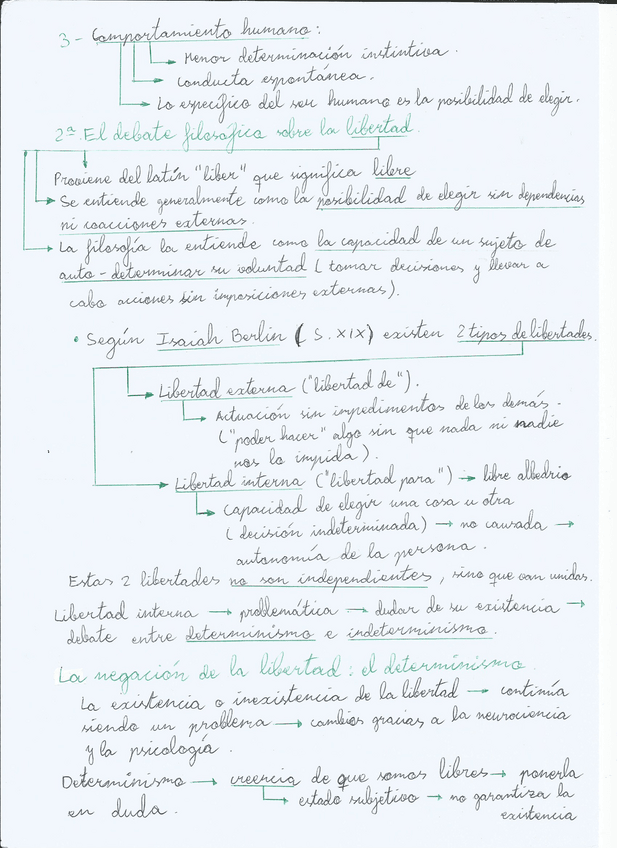 3- Comportamiento humano:
→ Menor determinación instintiva.
→ Conducta espontánea.
→ Lo específico del ser humano es la posibilidad de elegir.
2ª. El debate filosófico sobre la libertad.
Proviene del latín "liber" que significa libre
→ Se entiende generalmente como la posibilidad de elegir sin dependencias
ni coacciones externas.
→ La filosofía la entiende como la capacidad de un sujeto de
auto-determinar su voluntad (tomar decisiones y llevar a
cabo acciones sin imposiciones externas).
• Según Isaiah Berlin (S. XIX) existen 2 tipos de libertades.
→ Libertad externa ("libertad de").
→ Actuación sin impedimentos de los demás.
("poder hacer" algo sin que nada ni nadie
nos lo impida).
→ Libertad interna ("libertad para") → libre albedrio
→ Capacidad de elegir una cosa u otra
(decisión indeterminada) → no causada →
autonomía de la persona.
Estas 2 libertades no son independientes, sino que van unidas.
Libertad interna → problemática → dudar de su existencia →
debate entre determinismo e indeterminismo.
La negación de la libertad: el determinismo.
La existencia o inexistencia de la libertad → continúa
siendo un problema → cambios gracias a la neurociencia
y la psicología.
Determinismo → creencia de que somos libres → ponerla
en duda.
→ estado subjetivo → no garantiza la
existencia